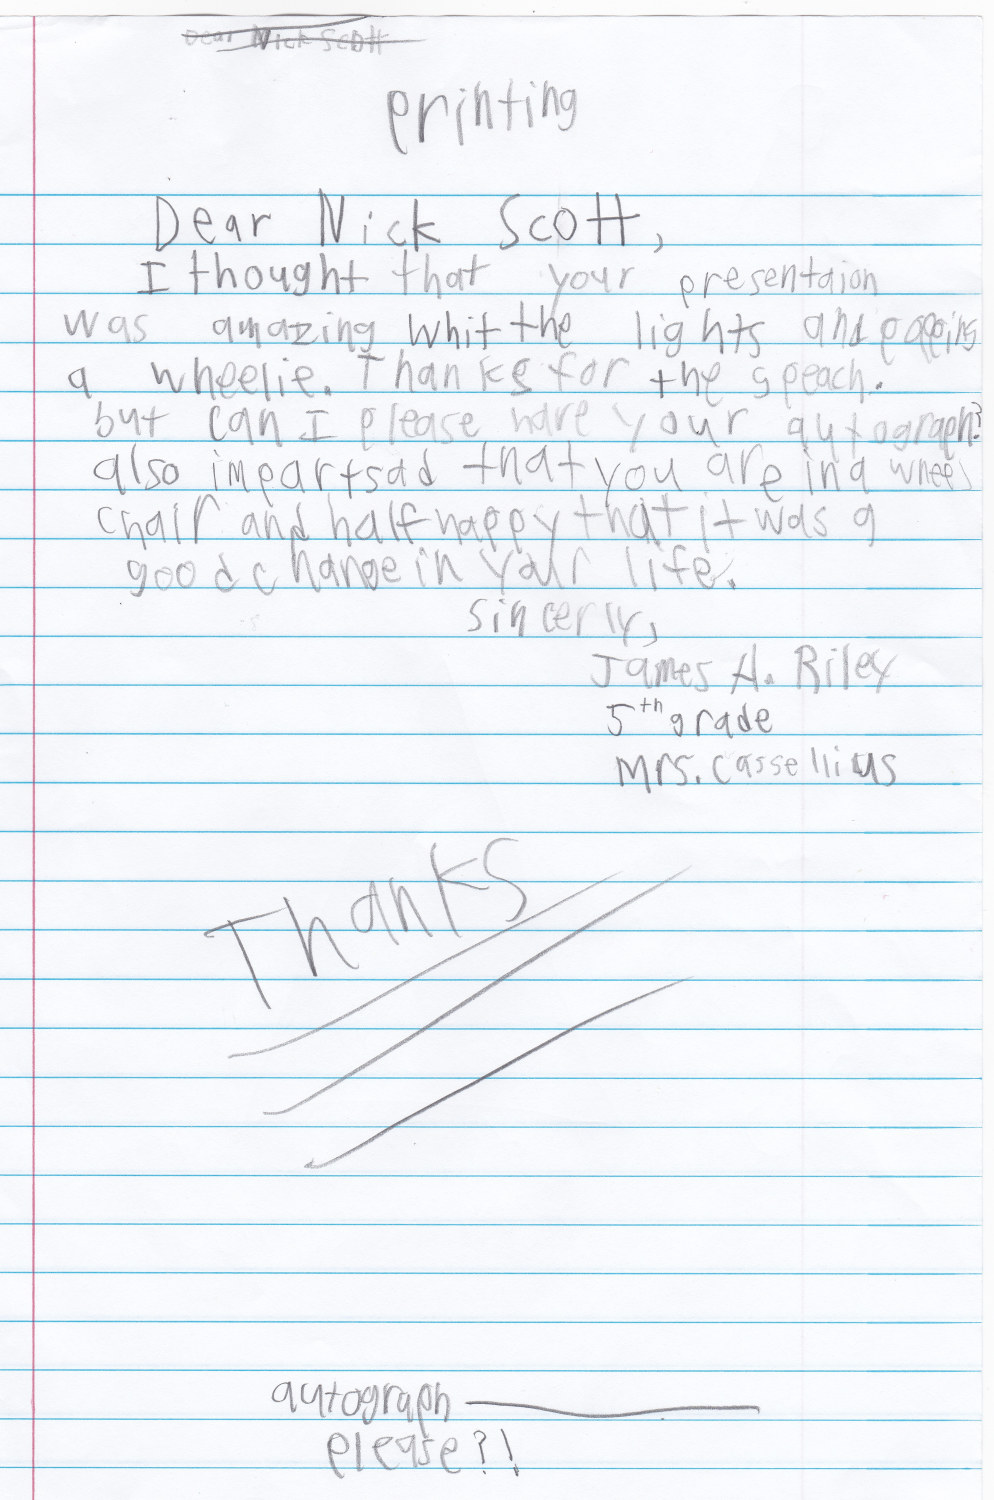 Dear Nick Scott
printing
Dear Nick Scott,
I thought that your presentaion
was amazing whit the lights and popping
a wheelie. Thanks for the speach.
but can I please have your autograph?
also impartsad that you are in a wheel
chair and half happy that it was a
good change in your life.
sincerly,
James H. Riley
5th grade
mrs. cassellius
Thanks
autograph
please?!